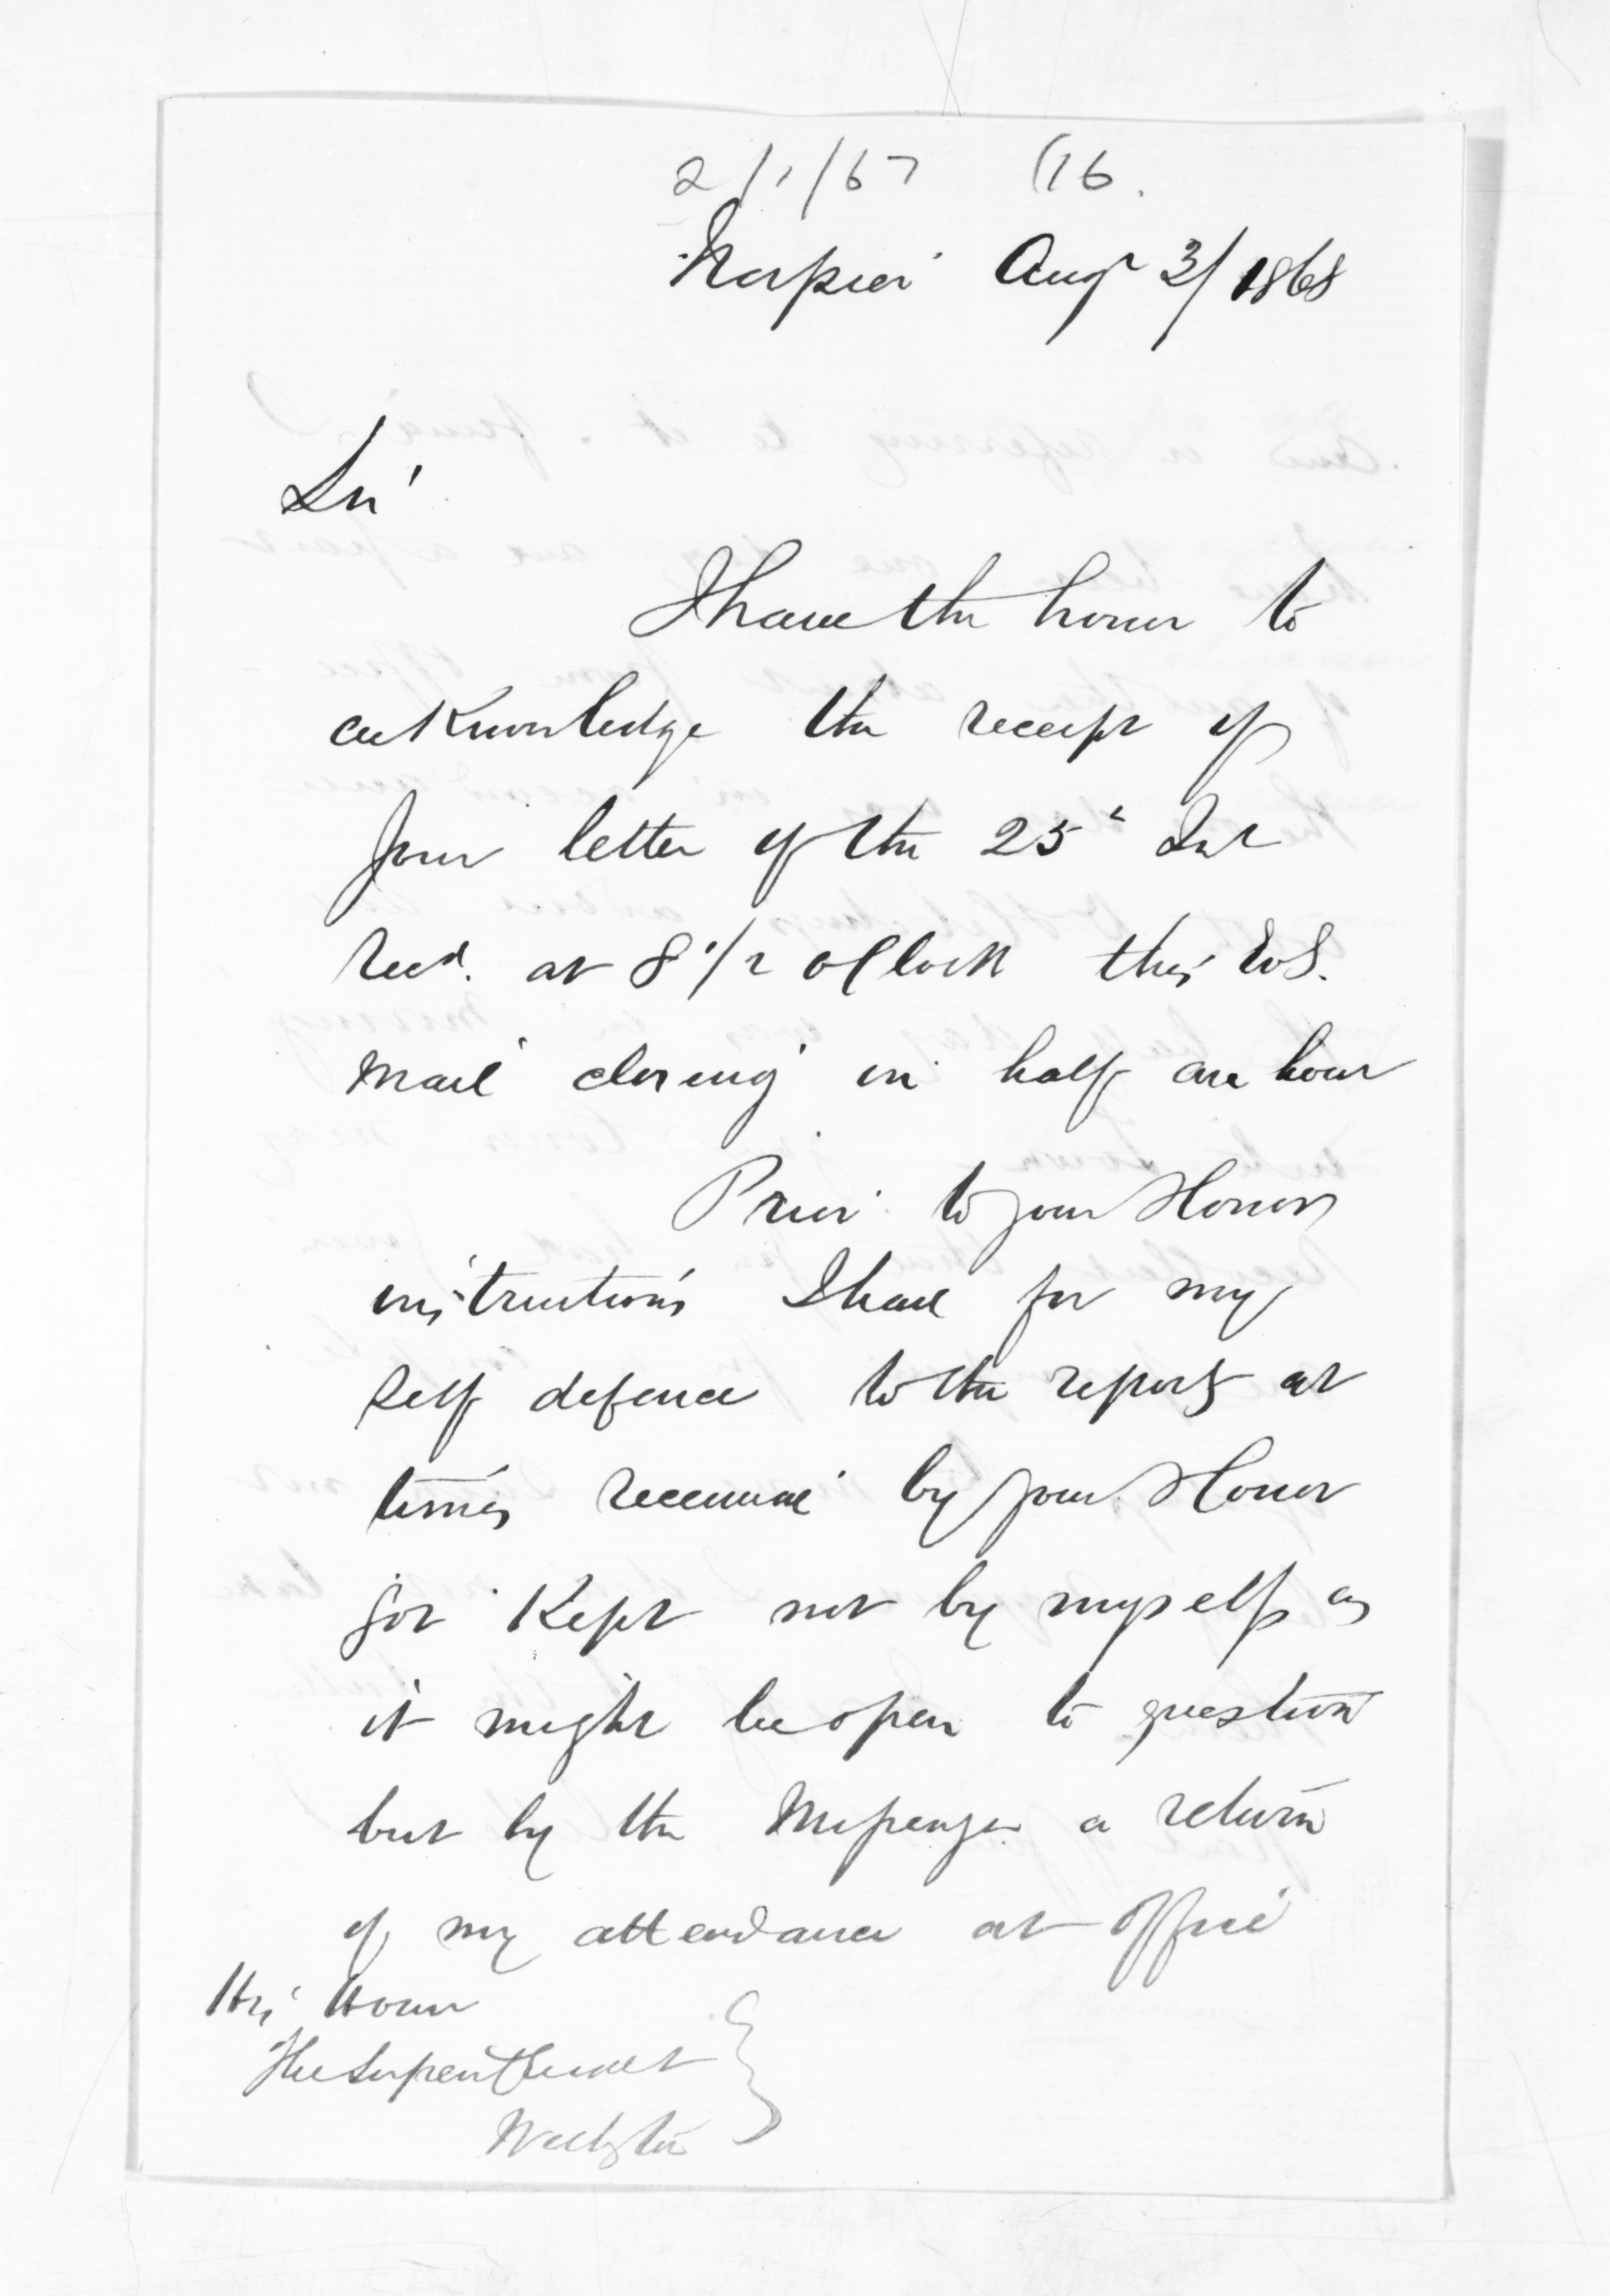 2/1/67 (16.
Napier Augt 3/ 1868
Sir
I have the honor to
acknowledge the receipt of
your letter of the 25th Inst
Recd. at 8 1/2 oClock this
Mail closing in half an hour
Prior to your Honors
instructions I have for my
self defence to the reports at
times received by your Honor
got Kept not by myself as
it might be open to question
but by the Messenger a return
of my attendance at office
His Honor
The Superintendent
Wellington